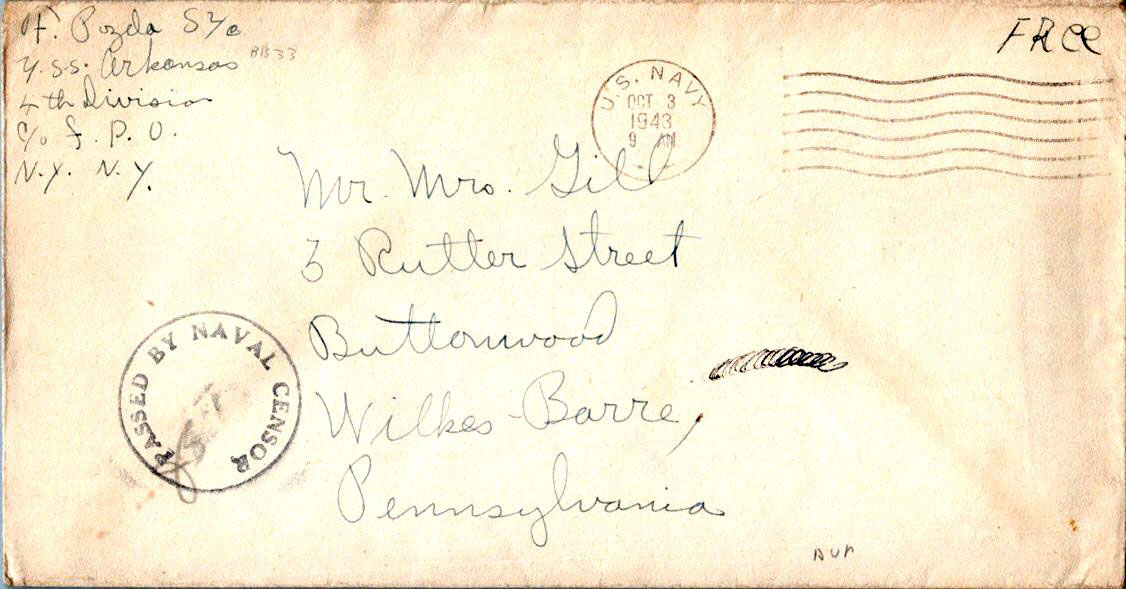 H. Pozda S2/c
U.S.S. Arkansas BB33
4th Division
c/o F.P.O.
N.Y. N.Y.
Free
U.S. NAVY
OCT 3
1943
9 AM
Mr. Mrs. Gill
3 Rutter Street
Buttonwood
Wilkes-Barre,
Pennsylvania
PASSED BY NAVAL CENSOR